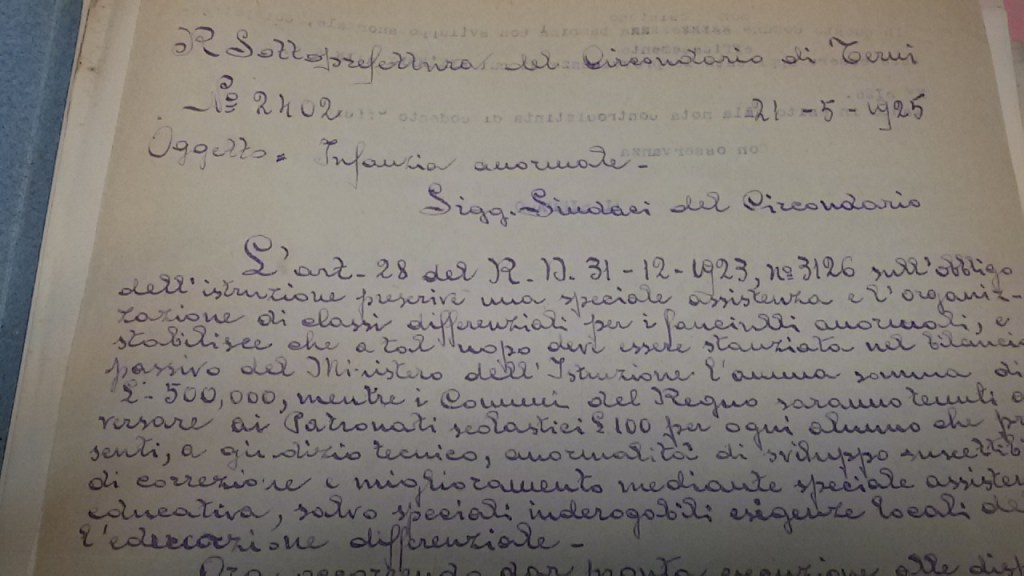 R Sottoprefettura del Circondario di Terni
Nº 2402 21-5-1925
Oggetto = Infanzia anormale -
Sigg. Sindaci del Circondario
L'art. 28 del R. D. 31-12-1923, nº 3126 sull'obbligo
dell'istruzione prescrive una speciale assistenza e l'organiz-
zazione di classi differenziali per i fanciulli anormali, e
stabilisce che a tal uopo deve essere stanziata nel bilancio
passivo del Ministero dell'Istruzione l'annua somma di
£ - 500,000, mentre i Comuni del Regno saranno tenuti a
versare ai Patronati scolastici £ 100 per ogni alunno che pre
senti, a giudizio tecnico, anormalità di sviluppo suscettib
di correzione e miglioramento mediante speciale assisten
educativa, salvo speciali inderogabili esigenze locali de
l'educazione differenziale -
Ora occorrendo dar pronta esecuzione alle disp